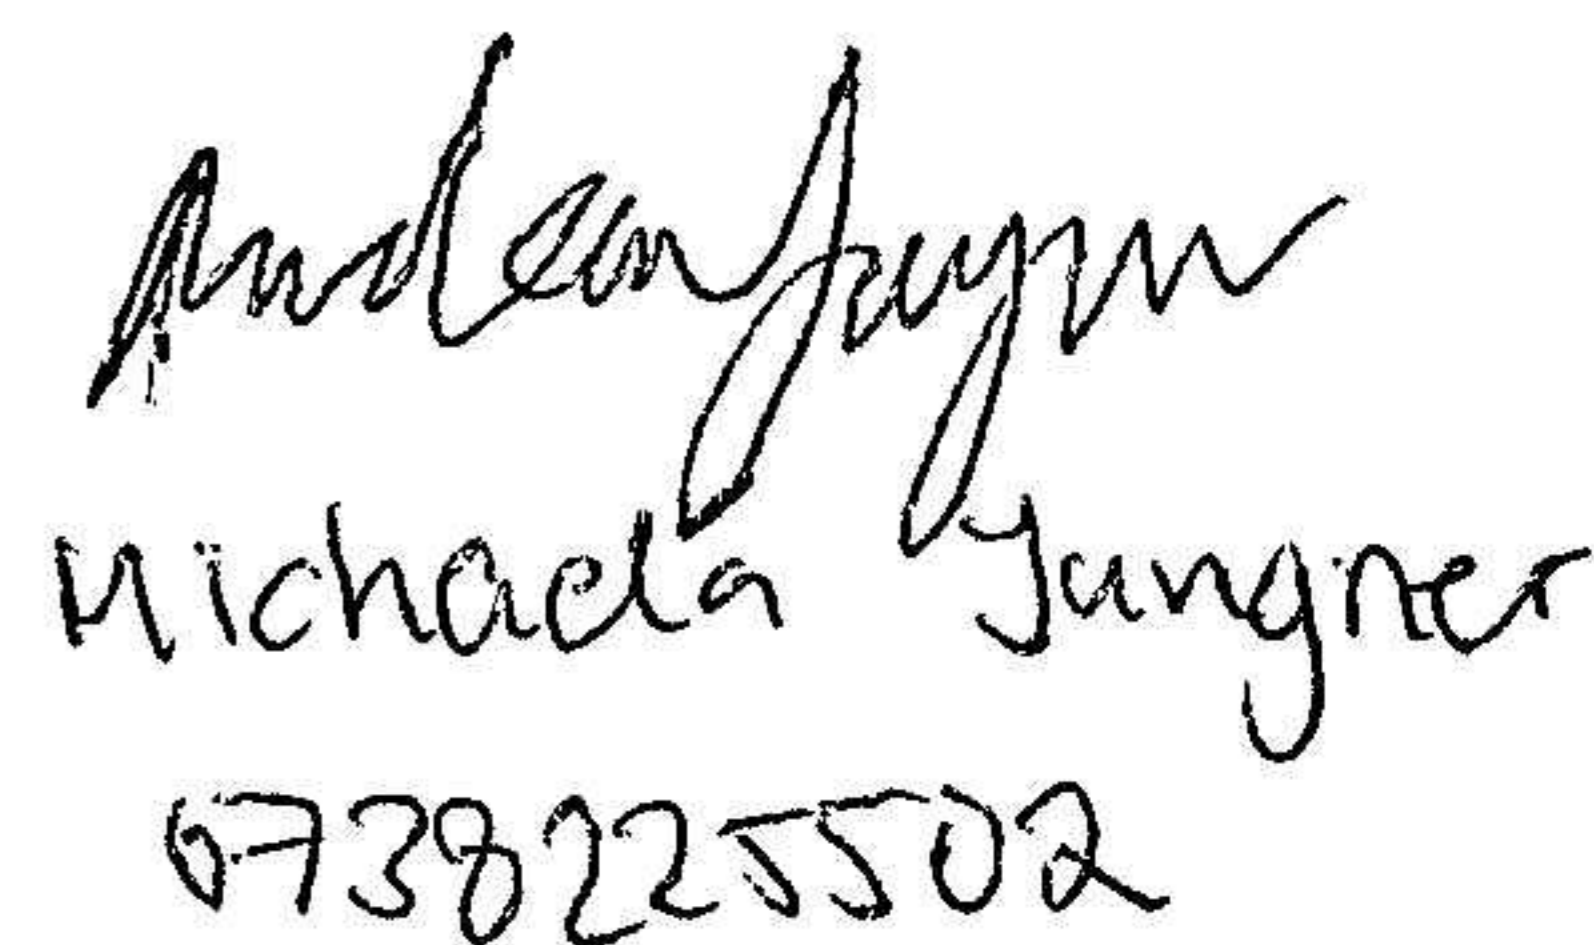 Michaela Jungner
0738225502